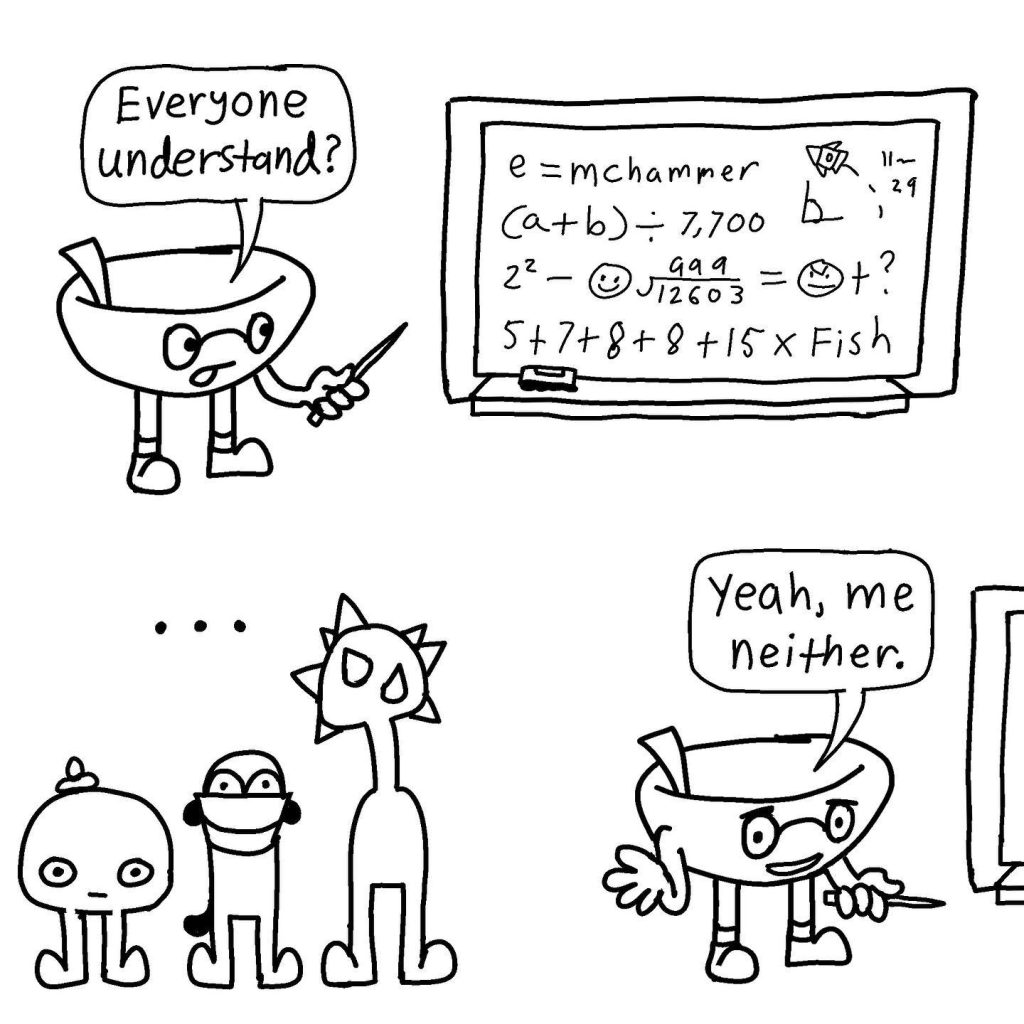 Everyone
understand?
e = mchammer
(a+b) ÷ 7,700
2² - ☺√999/12603 = 😠+?
5+7+8+8+15 x Fish
b
11~
; 29
...
Yeah, me
neither.